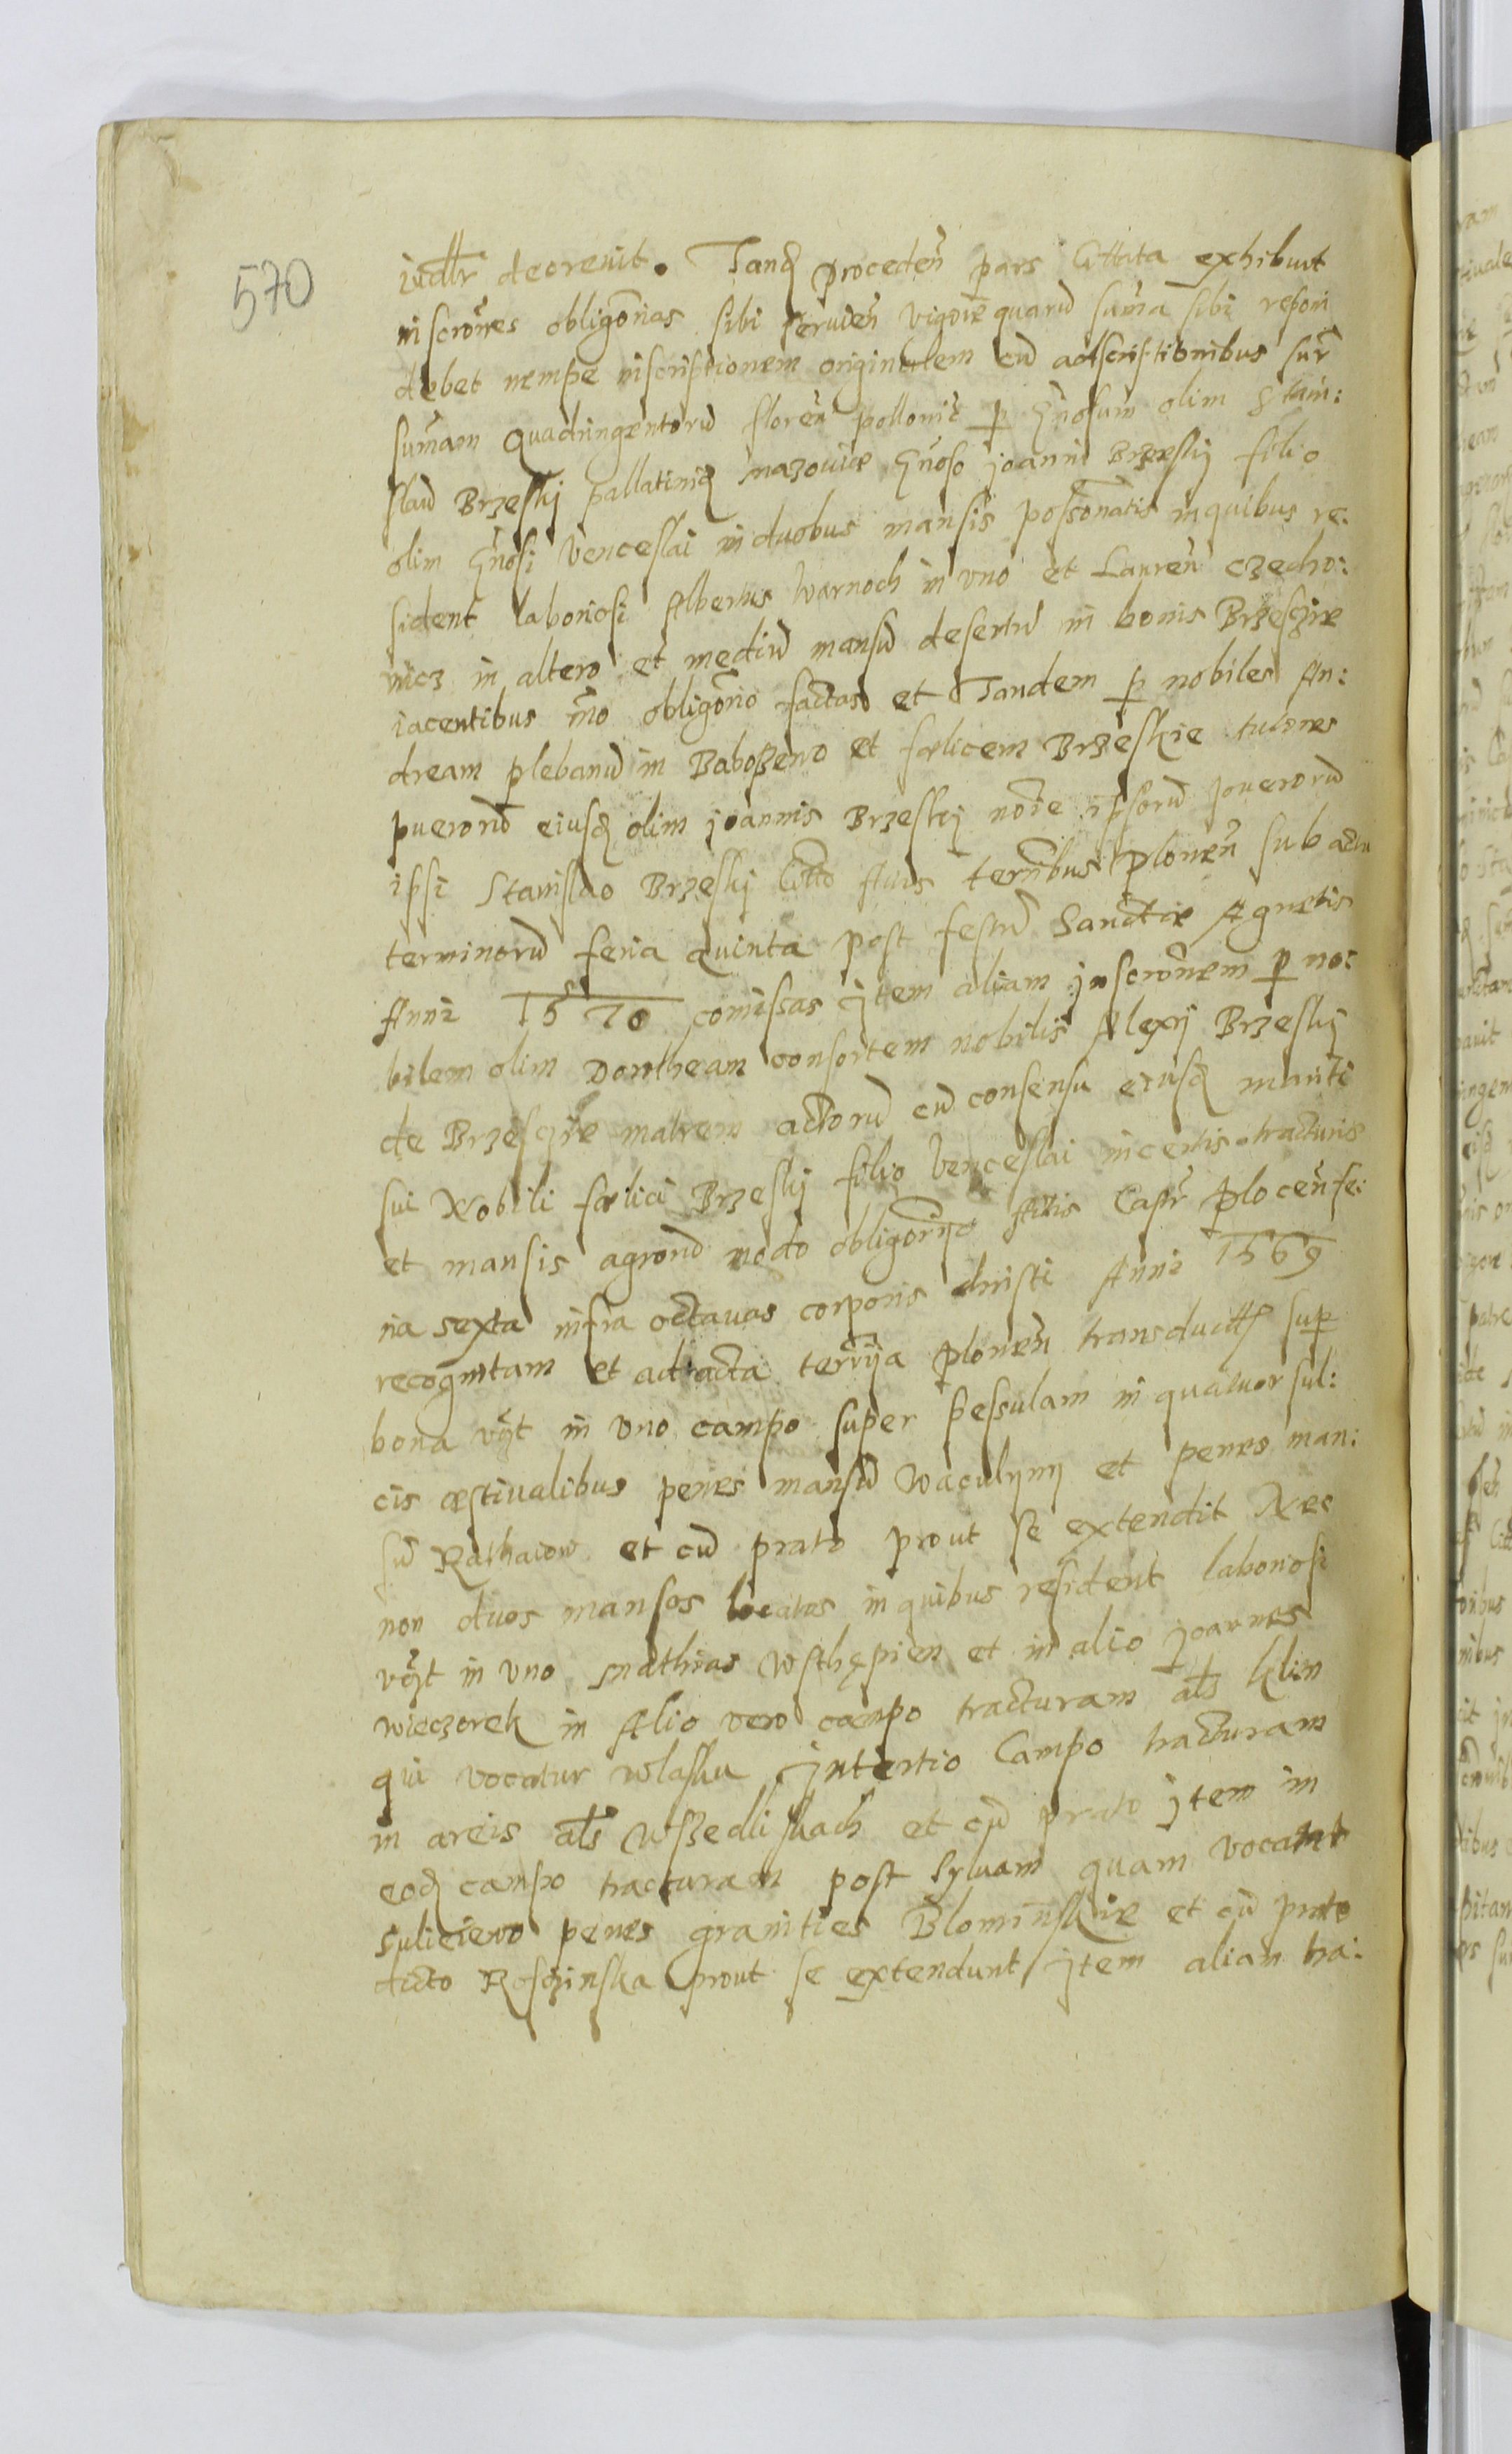 570
iudlr decreuit. Tandē proceden̄ pars Cittata exhibuit
inscrōnes obligōrias sibi seruien̄ vigore quarū sum̄a sibi reponi
debet nempe inscriptionem originalem cū adscriptionibus supr
sum̄am Quadringentorū floren̄ pollonic̄ p Gn̄osum olim Stani:
slaū Brzeskij pallatinū mazouiæ Gn̄oso joanni Brzeskij filio
olim Gn̄osi Venceslai in duobus mansis possōnatis in quibus re:
sident laboriosi Albertus Warnoch in vno et Lauren̄ Czecho:
nicz in altero et mediū mansū desertū in bonis Brzesczie
iacentibus mō obligōrio factas et Tandem p nobiles An:
dream plebanū in Baboszewo et fœlicem Brzeskie tutores
puerorū eiusd olim joannis Brzeskij noīe ipsorū puerorū
ipsi Stanislao Brzeskij Citto Actis ter̄ribus Plonen̄ sub actu
terminorū feria quinta post festū Sanctæ Agnetis
Anni 1570 comissas jtem aliam jnscrōnem p no:
bilem olim Dorotheam consortem nobilis Alexij Brzeskij
de Brzesczie matrem actorū cū consensu eiusd mariti
sui Nobili fœlici Brzeskij filio Venceslai in certis tracturis
et mansis agrorū modo obligōrijo Actis Castr Plocen̄ fe:
ria sexta infra octauas corporis christi Anni 1569
recognitam et ad acta ter̄rija plonen̄ transduct sup
bona vz̄t in vno campo super Pessulam in quatuor sul:
cis œstiualibus penes mansū Waculijnij et penes man:
sū Rathaiow et cū prato prout se extendit Nec
non duos mansos locatos in quibus resident laboriosi
vz̄t in vno Mathias Wsthępien et in alio joannes
Wieczorek in Alio vero campo tracturam als klin
qui vocatur Wlasku jn tertio Campo tracturam
in areis als Wszedliskach et cū prato jtem in
eod campo tracturam post syluam quam vocant
Sulieiewo penes granities Blominskie et cū prato
dicto Rosczinska prout se extendunt jtem aliam tra: